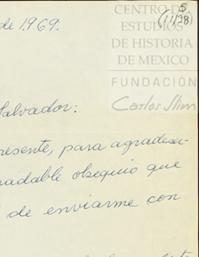 CENTRO DE
ESTUDIOS
DE HISTORIA
DE MEXICO
FUNDACIÓN
Carlos Slim
5
(11/38)
de 1969.
Salvador:
presente, para agradecer
radable obsequio que
de enviarme con